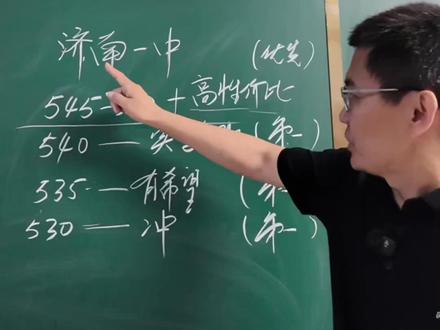 济南一中 (优先)
545 — + 高性价比
540 — 实 (第一)
535 — 有希望 (第一)
530 — 冲 (第一)